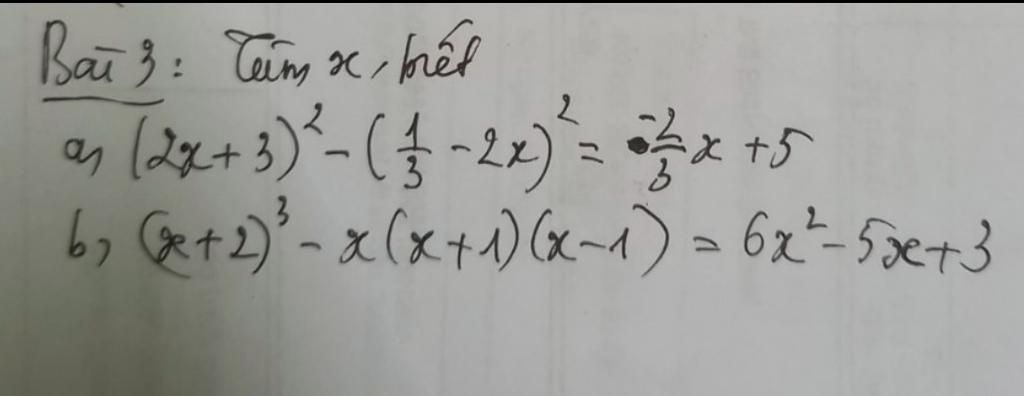 Bài 3: Tìm x, biết
a, (2x+3)² - (1/3 - 2x)² = -2/3 x + 5
b, (x+2)³ - x(x+1)(x-1) = 6x² - 5x + 3